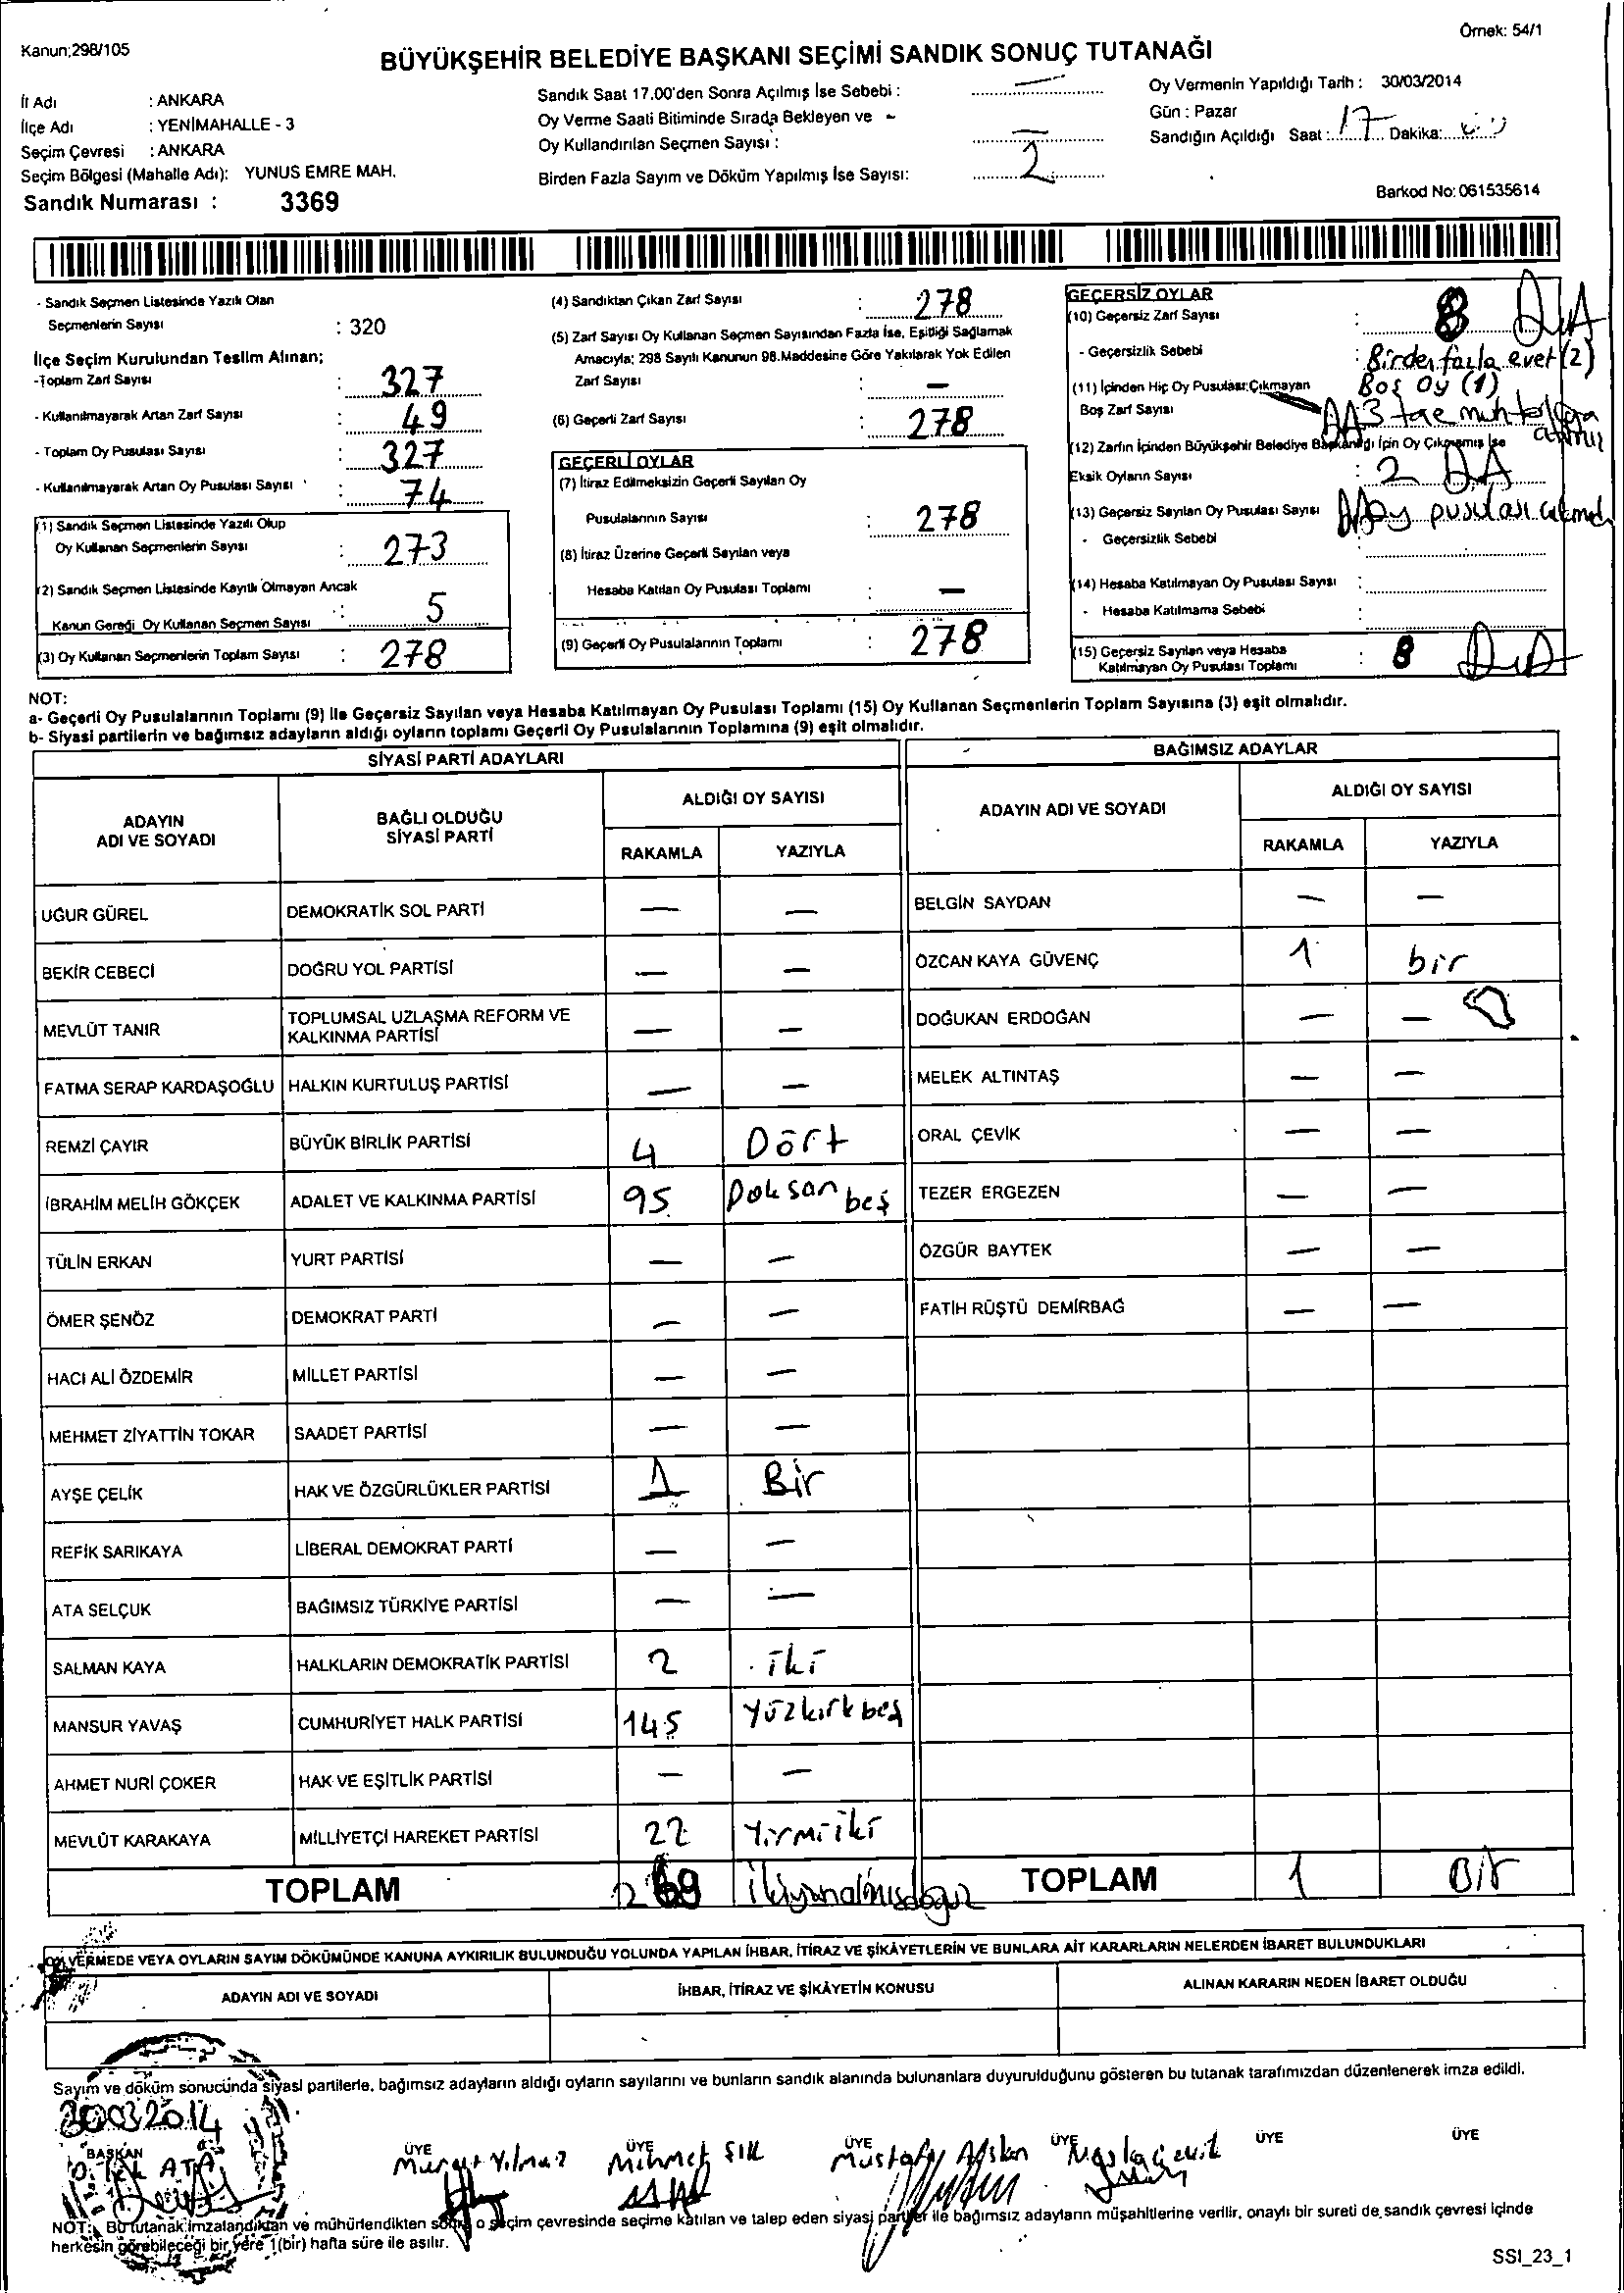 Örnek: 54/1
Kanun;298/105
BÜYÜKŞEHİR BELEDİYE BAŞKANI SEÇİMİ SANDIK SONUÇ TUTANAĞI
İl Adı : ANKARA
İlçe Adı : YENİMAHALLE - 3
Seçim Çevresi : ANKARA
Seçim Bölgesi (Mahalle Adı): YUNUS EMRE MAH.
Sandık Numarası : 3369
Sandık Saat 17.00'den Sonra Açılmış İse Sebebi : —
Oy Verme Saati Bitiminde Sırada Bekleyen ve
Oy Kullandırılan Seçmen Sayısı : —
Birden Fazla Sayım ve Döküm Yapılmış İse Sayısı: 2
Oy Vermenin Yapıldığı Tarih : 30/03/2014
Gün : Pazar
Sandığın Açıldığı Saat : 17 Dakika:
Barkod No: 061535614
- Sandık Seçmen Listesinde Yazılı Olan
Seçmenlerin Sayısı : 320
İlçe Seçim Kurulundan Teslim Alınan;
-Toplam Zarf Sayısı : 327
- Kullanılmayarak Artan Zarf Sayısı : 49
- Toplam Oy Pusulası Sayısı : 327
- Kullanılmayarak Artan Oy Pusulası Sayısı : 74
(1) Sandık Seçmen Listesinde Yazılı Olup
Oy Kullanan Seçmenlerin Sayısı : 273
(2) Sandık Seçmen Listesinde Kayıtlı Olmayan Ancak
Kanun Gereği Oy Kullanan Seçmen Sayısı : 5
(3) Oy Kullanan Seçmenlerin Toplam Sayısı : 278
(4) Sandıktan Çıkan Zarf Sayısı : 278
(5) Zarf Sayısı Oy Kullanan Seçmen Sayısından Fazla İse, Eşitliği Sağlamak
Amacıyla; 298 Sayılı Kanunun 98.Maddesine Göre Yakılarak Yok Edilen
Zarf Sayısı : —
(6) Geçerli Zarf Sayısı : 278
GEÇERLİ OYLAR
(7) İtiraz Edilmeksizin Geçerli Sayılan Oy
Pusulalarının Sayısı : 278
(8) İtiraz Üzerine Geçerli Sayılan veya
Hesaba Katılan Oy Pusulası Toplamı : —
(9) Geçerli Oy Pusulalarının Toplamı : 278
GEÇERSİZ OYLAR
(10) Geçersiz Zarf Sayısı : 8
- Geçersizlik Sebebi : Birden fazla evet (2)
Boş Oy (1)
(11) İçinden Hiç Oy Pusulası Çıkmayan
Boş Zarf Sayısı 3 tane
(12) Zarfın İçinden Büyükşehir Belediye Başkanlığı İçin Oy Çıkmamış İse
Eksik Oyların Sayısı : 2
(13) Geçersiz Sayılan Oy Pusulası Sayısı oy pusulası
- Geçersizlik Sebebi
(14) Hesaba Katılmayan Oy Pusulası Sayısı :
- Hesaba Katılmama Sebebi :
(15) Geçersiz Sayılan veya Hesaba
Katılmayan Oy Pusulası Toplamı : 8
NOT:
a- Geçerli Oy Pusulalarının Toplamı (9) ile Geçersiz Sayılan veya Hesaba Katılmayan Oy Pusulası Toplamı (15) Oy Kullanan Seçmenlerin Toplam Sayısına (3) eşit olmalıdır.
b- Siyasi partilerin ve bağımsız adayların aldığı oyların toplamı Geçerli Oy Pusulalarının Toplamına (9) eşit olmalıdır.
SİYASİ PARTİ ADAYLARI
ADAYIN ADI VE SOYADI BAĞLI OLDUĞU SİYASİ PARTİ ALDIĞI OY SAYISI
RAKAMLA YAZIYLA
UĞUR GÜREL DEMOKRATİK SOL PARTİ — —
BEKİR CEBECİ DOĞRU YOL PARTİSİ — —
MEVLÜT TANIR TOPLUMSAL UZLAŞMA REFORM VE KALKINMA PARTİSİ — —
FATMA SERAP KARDAŞOĞLU HALKIN KURTULUŞ PARTİSİ — —
REMZİ ÇAYIR BÜYÜK BİRLİK PARTİSİ 4 Dört
İBRAHİM MELİH GÖKÇEK ADALET VE KALKINMA PARTİSİ 95 Doksan beş
TÜLİN ERKAN YURT PARTİSİ — —
ÖMER ŞENÖZ DEMOKRAT PARTİ — —
HACI ALİ ÖZDEMİR MİLLET PARTİSİ — —
MEHMET ZİYATTİN TOKAR SAADET PARTİSİ — —
AYŞE ÇELİK HAK VE ÖZGÜRLÜKLER PARTİSİ 1 Bir
REFİK SARIKAYA LİBERAL DEMOKRAT PARTİ — —
ATA SELÇUK BAĞIMSIZ TÜRKİYE PARTİSİ — —
SALMAN KAYA HALKLARIN DEMOKRATİK PARTİSİ 2 iki
MANSUR YAVAŞ CUMHURİYET HALK PARTİSİ 145 Yüzkırkbeş
AHMET NURİ ÇOKER HAK VE EŞİTLİK PARTİSİ — —
MEVLÜT KARAKAYA MİLLİYETÇİ HAREKET PARTİSİ 22 Yirmiiki
TOPLAM 269 ikiyüzaltmışdokuz
BAĞIMSIZ ADAYLAR
ADAYIN ADI VE SOYADI ALDIĞI OY SAYISI
RAKAMLA YAZIYLA
BELGİN SAYDAN — —
ÖZCAN KAYA GÜVENÇ 1 bir
DOĞUKAN ERDOĞAN — —
MELEK ALTINTAŞ — —
ORAL ÇEVİK — —
TEZER ERGEZEN — —
ÖZGÜR BAYTEK — —
FATİH RÜŞTÜ DEMİRBAĞ — —
TOPLAM 1 Bir
OY VERMEDE VEYA OYLARIN SAYIM DÖKÜMÜNDE KANUNA AYKIRILIK BULUNDUĞU YOLUNDA YAPILAN İHBAR, İTİRAZ VE ŞİKÂYETLERİN VE BUNLARA AİT KARARLARIN NELERDEN İBARET BULUNDUKLARI
ADAYIN ADI VE SOYADI İHBAR, İTİRAZ VE ŞİKÂYETİN KONUSU ALINAN KARARIN NEDEN İBARET OLDUĞU
Sayım ve döküm sonucunda siyasi partilerle, bağımsız adayların aldığı oyların sayılarını ve bunların sandık alanında bulunanlara duyurulduğunu gösteren bu tutanak tarafımızdan düzenlenerek imza edildi.
30.03.2014
BAŞKAN ÜYE ÜYE ÜYE ÜYE ÜYE ÜYE
ATA Murat Yılmaz Mehmet Mustafa
NOT: Bu tutanak imzalandıktan ve mühürlendikten sonra o seçim çevresinde seçime katılan ve talep eden siyasi partiler ile bağımsız adayların müşahitlerine verilir, onaylı bir sureti de sandık çevresi içinde
herkesin görebileceği bir yere 1(bir) hafta süre ile asılır.
SSI_23_1